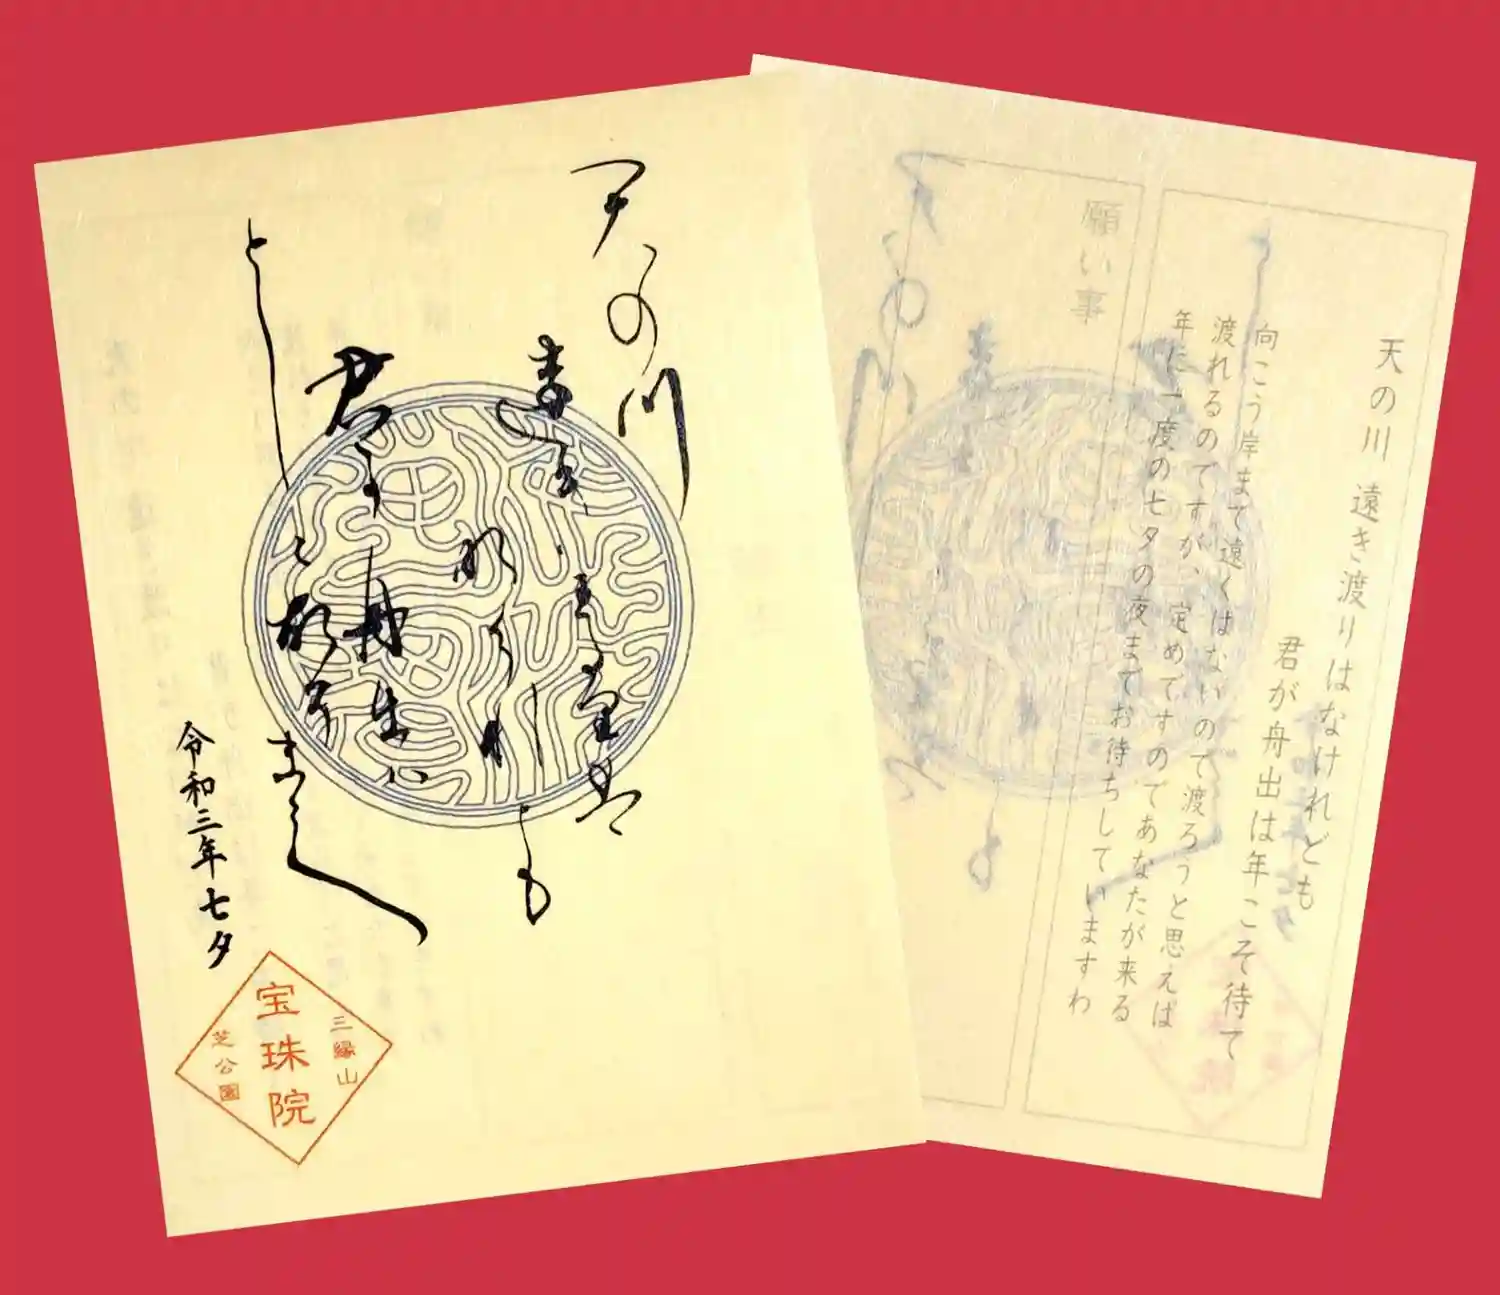 天の川
遠き渡りは
なけれども
君が舟出は
としこそ
まて
令和三年七夕
三縁山
宝珠院
芝公園
天の川 遠き渡りはなけれども
君が舟出は年こそ待て
向こう岸まで遠くはないので渡ろうと思えば
渡れるのですが、定めですのであなたが来る
年に一度の七夕の夜までお待ちしていますわ
願い事